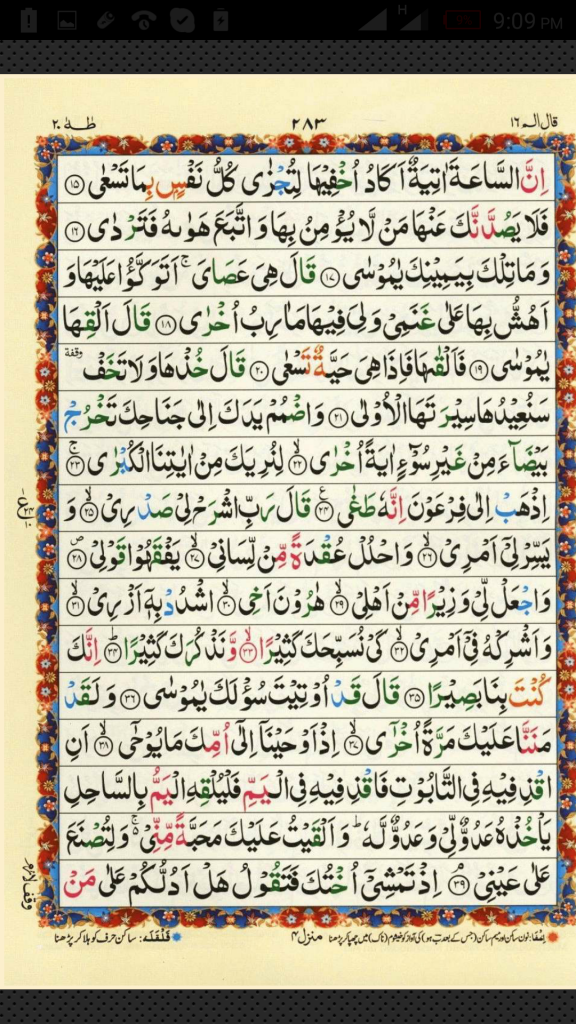 H
9:09 PM
طٰهٰ ٢٠
٢٨٣
قال الم ١٦
اِنَّ السَّاعَةَ اٰتِيَةٌ اَكَادُ اُخْفِيْهَا لِتُجْزٰى كُلُّ نَفْسٍۭ بِمَا تَسْعٰى ١٥
فَلَا يَصُدَّنَّكَ عَنْهَا مَنْ لَّا يُؤْمِنُ بِهَا وَ اتَّبَعَ هَوٰىهُ فَتَرْدٰى ١٦
وَ مَا تِلْكَ بِيَمِيْنِكَ يٰمُوْسٰى ١٧ قَالَ هِىَ عَصَاىَ ۚ اَتَوَكَّؤُا عَلَيْهَا وَ
اَهُشُّ بِهَا عَلٰى غَنَمِىْ وَ لِىَ فِيْهَا مَاٰرِبُ اُخْرٰى ١٨ قَالَ اَلْقِهَا
يٰمُوْسٰى ١٩ فَاَلْقٰىهَا فَاِذَا هِىَ حَيَّةٌ تَسْعٰى ٢٠ قَالَ خُذْهَا وَ لَا تَخَفْ وقفة
سَنُعِيْدُهَا سِيْرَتَهَا الْاُوْلٰى ٢١ وَ اضْمُمْ يَدَكَ اِلٰى جَنَاحِكَ تَخْرُجْ
بَيْضَآءَ مِنْ غَيْرِ سُوْٓءٍ اٰيَةً اُخْرٰى ٢٢ لِنُرِيَكَ مِنْ اٰيٰتِنَا الْكُبْرٰى ٢٣
اِذْهَبْ اِلٰى فِرْعَوْنَ اِنَّهٗ طَغٰى ٢٤ قَالَ رَبِّ اشْرَحْ لِىْ صَدْرِىْ ٢٥ وَ
يَسِّرْ لِىْٓ اَمْرِىْ ٢٦ وَ احْلُلْ عُقْدَةً مِّنْ لِّسَانِىْ ٢٧ يَفْقَهُوْا قَوْلِىْ ٢٨
وَ اجْعَلْ لِّىْ وَزِيْرًا مِّنْ اَهْلِىْ ٢٩ هٰرُوْنَ اَخِى ٣٠ اشْدُدْ بِهٖٓ اَزْرِىْ ٣١
وَ اَشْرِكْهُ فِىْٓ اَمْرِىْ ٣٢ كَىْ نُسَبِّحَكَ كَثِيْرًا ٣٣ وَّ نَذْكُرَكَ كَثِيْرًا ٣٤ اِنَّكَ
كُنْتَ بِنَا بَصِيْرًا ٣٥ قَالَ قَدْ اُوْتِيْتَ سُؤْلَكَ يٰمُوْسٰى ٣٦ وَ لَقَدْ
مَنَنَّا عَلَيْكَ مَرَّةً اُخْرٰٓى ٣٧ اِذْ اَوْحَيْنَآ اِلٰٓى اُمِّكَ مَا يُوْحٰٓى ٣٨ اَنِ
اقْذِفِيْهِ فِى التَّابُوْتِ فَاقْذِفِيْهِ فِى الْيَمِّ فَلْيُلْقِهِ الْيَمُّ بِالسَّاحِلِ
يَاْخُذْهُ عَدُوٌّ لِّىْ وَ عَدُوٌّ لَّهٗ ؕ وَ اَلْقَيْتُ عَلَيْكَ مَحَبَّةً مِّنِّىْ ۚ۬ وَ لِتُصْنَعَ
عَلٰى عَيْنِىْ ٣٩ اِذْ تَمْشِىْٓ اُخْتُكَ فَتَقُوْلُ هَلْ اَدُلُّكُمْ عَلٰى مَنْ
وقف لازم
اِخفا: نون ساکن اور میم ساکن (جس کے بعد ب ہو) کی آواز کو خیشوم (ناک) میں چھپا کر پڑھنا
منزل ٤
قَلقَلَہ: ساکن حرف کو ہلا کر پڑھنا